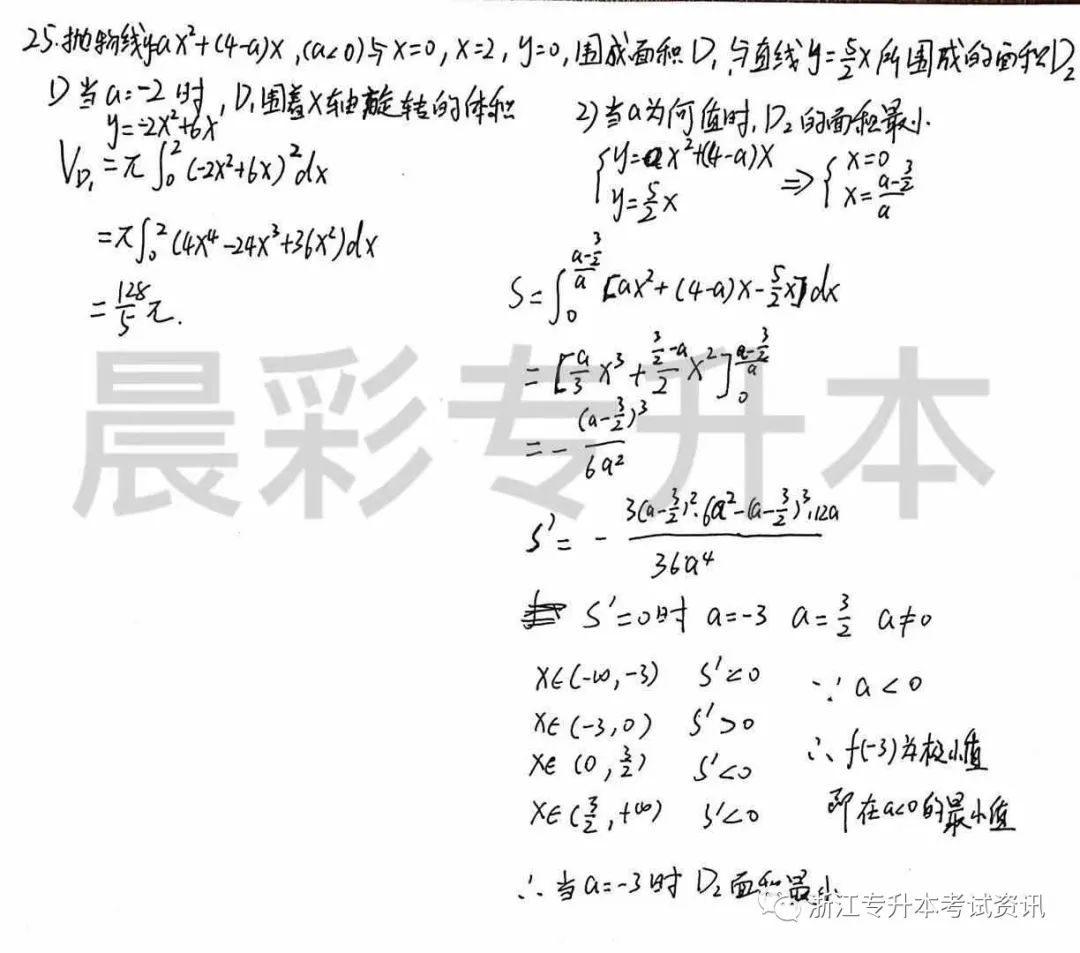 25.抛物线y=ax²+(4-a)x,(a<0)与x=0,x=2,y=0,围成面积D₁,与直线y=5/2x所围成的面积D₂
1)当a=-2时,D₁围着X轴旋转的体积
y=-2x²+6x
V_D₁=π∫₀²(-2x²+6x)²dx
=π∫₀²(4x⁴-24x³+36x²)dx
=128/5π.
2)当a为何值时,D₂的面积最小.
{y=ax²+(4-a)x
y=5/2x
⇒{x=0
x=(a-3/2)/a
S=∫₀^((a-3/2)/a)[ax²+(4-a)x-5/2x]dx
=[a/3x³+(3/2-a)/2x²]₀^((a-3/2)/a)
=-(a-3/2)³/6a²
S'=-(3(a-3/2)²·6a²-(a-3/2)³·12a)/36a⁴
S'=0时 a=-3 a=3/2 a≠0
x∈(-∞,-3) S'<0
x∈(-3,0) S'>0
x∈(0,3/2) S'<0
x∈(3/2,+∞) S'<0
∵a<0
∴f(-3)为极小值
即在a<0的最小值
∴当a=-3时D₂面积最小
晨彩专升本
浙江专升本考试资讯